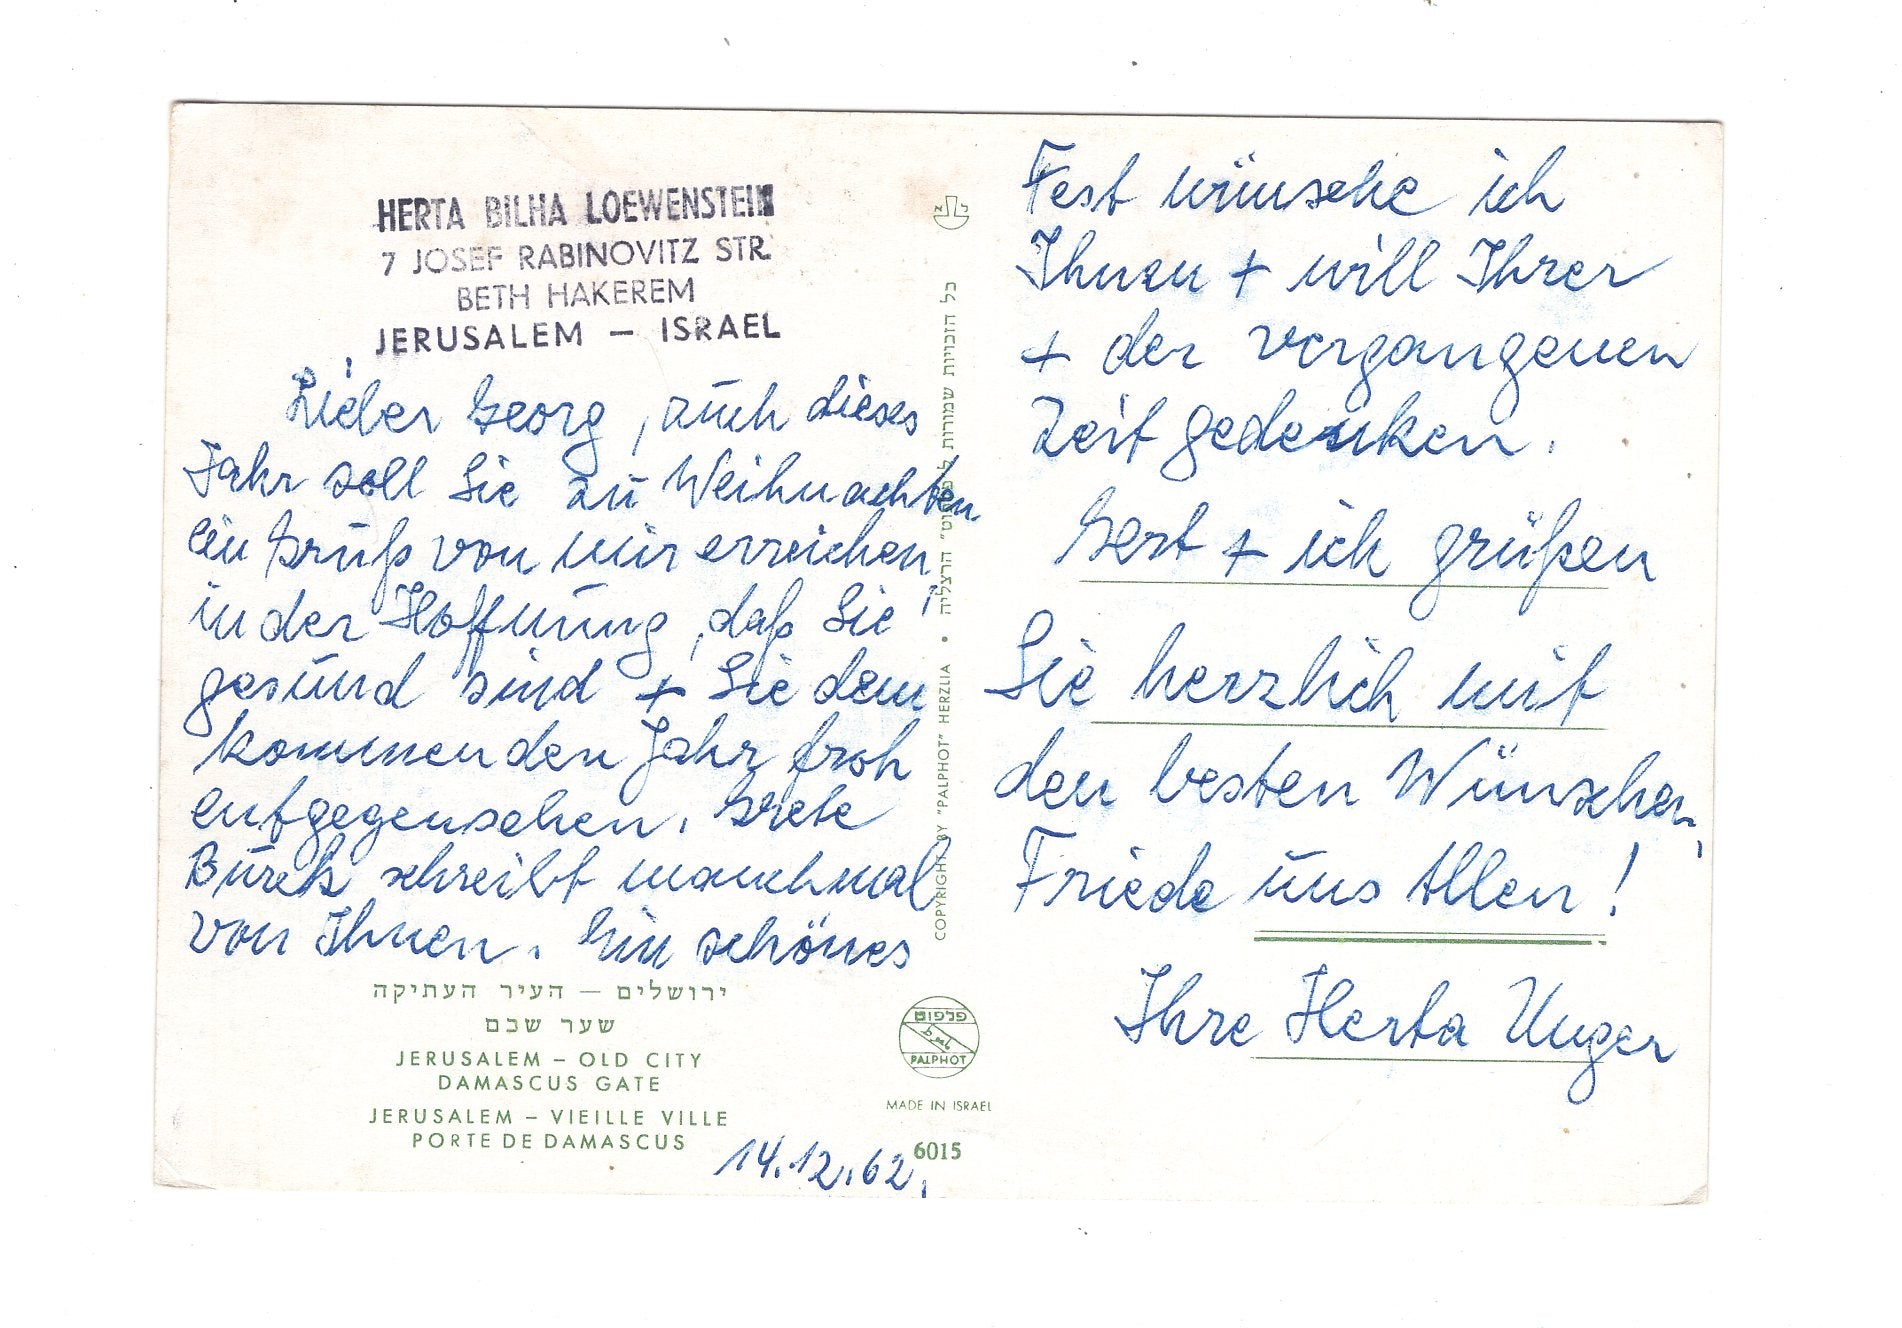 HERTA BILHA LOEWENSTEIN
7 JOSEF RABINOVITZ STR.
BETH HAKEREM
JERUSALEM — ISRAEL
Lieber Georg, auch dieses
Jahr soll Sie zu Weihnachten
ein Gruß von mir erreichen,
in der Hoffnung, daß Sie
gesund sind + Sie dem
kommenden Jahr froh
entgegensehen. Grete
Burek schreibt manchmal
von Ihnen. Ein schönes
ירושלים — העיר העתיקה
שער שכם
JERUSALEM – OLD CITY
DAMASCUS GATE
JERUSALEM – VIEILLE VILLE
PORTE DE DAMASCUS
14.12.62.
כל הזכויות שמורות • הרצליה
COPYRIGHT BY "PALPHOT" HERZLIA
פלפוט
PALPHOT
MADE IN ISRAEL
6015
Fest wünsche ich
Ihnen + will Ihrer
+ der vergangenen
Zeit gedenken.
Gert + ich grüßen
Sie herzlich mit
den besten Wünschen,
Friede uns Allen!
Ihre Herta Unger